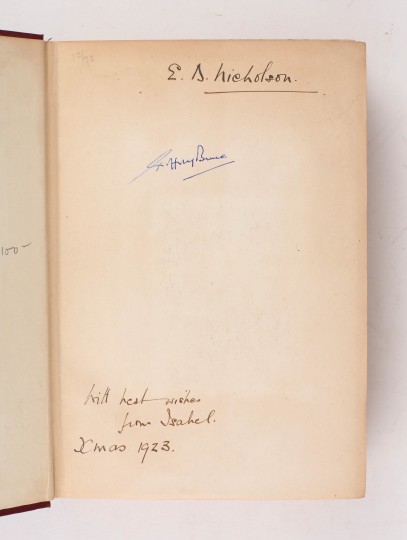 E. B. Nicholson.
100-
With best wishes
from Isabel.
Xmas 1923.